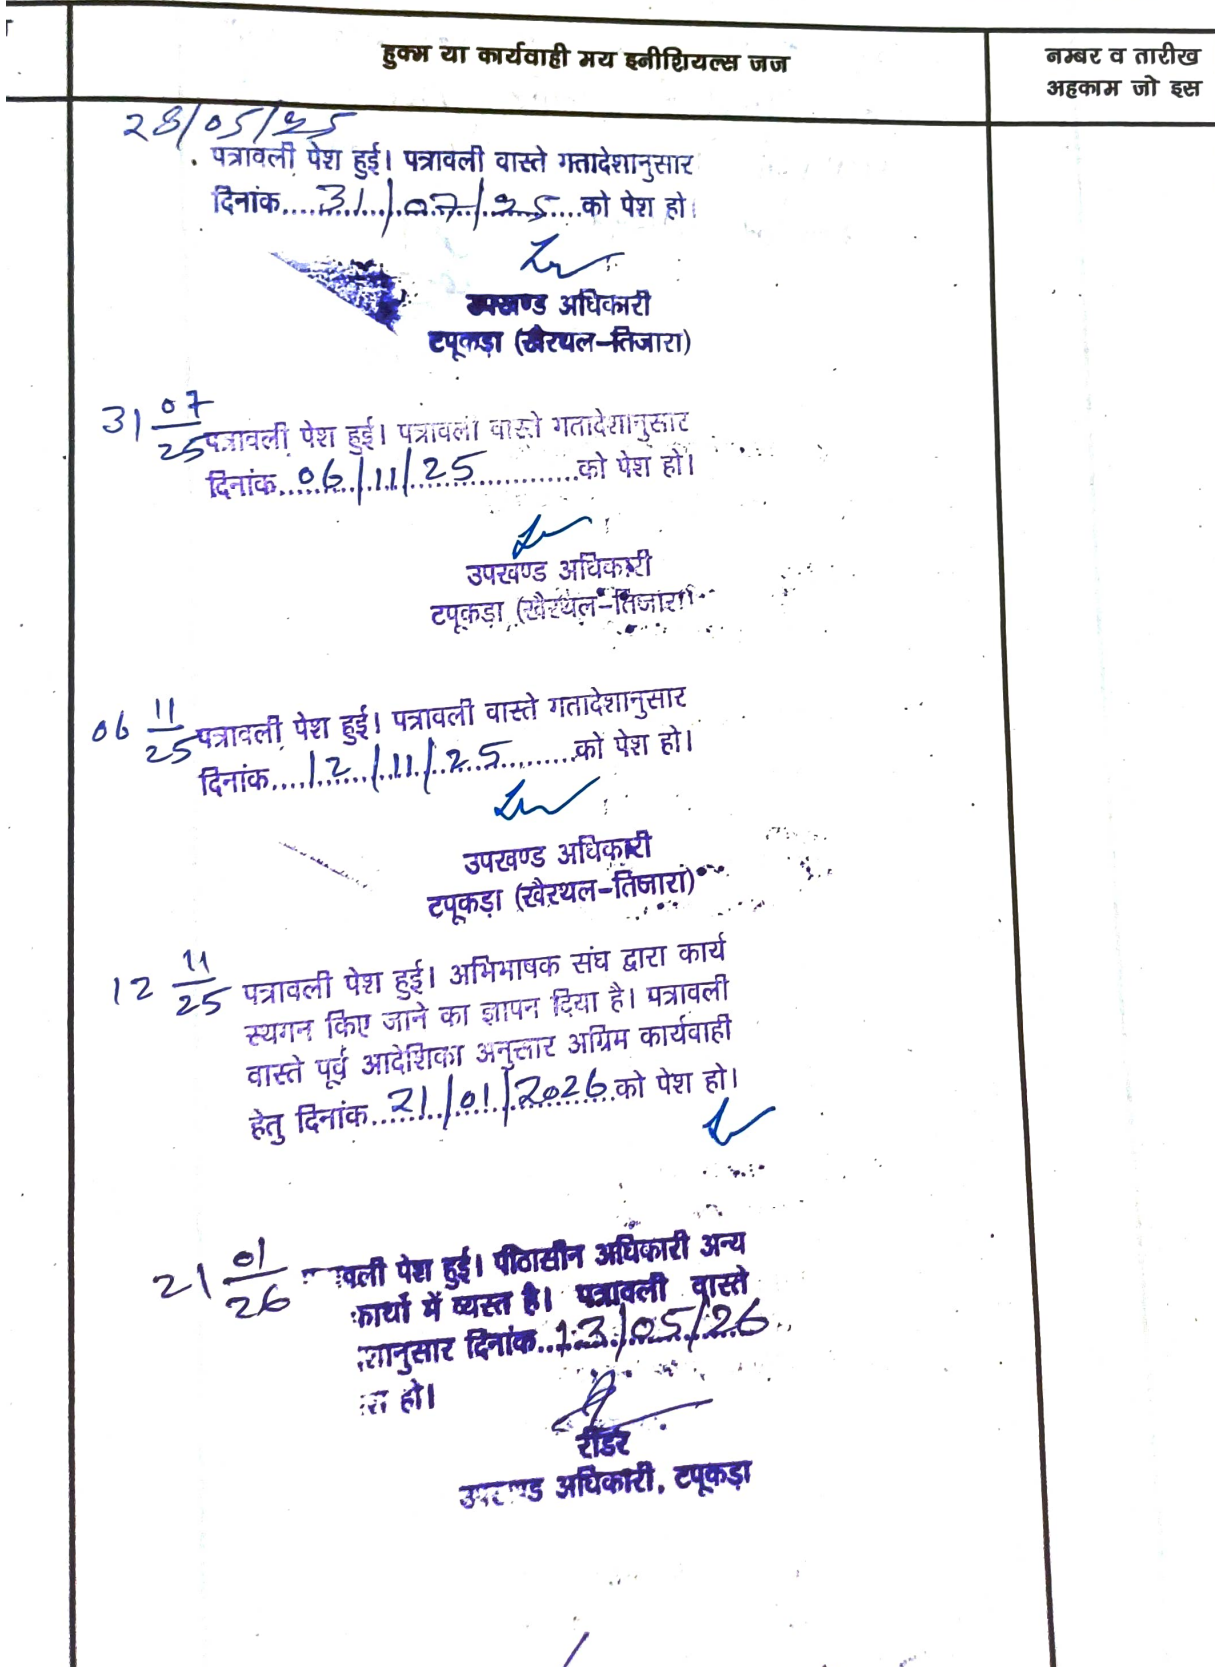 हुक्म या कार्यवाही मय इनीशियल्स जज
नम्बर व तारीख
अहकाम जो इस
28/05/25
पत्रावली पेश हुई। पत्रावली वास्ते गतादेशानुसार
दिनांक....31/07/25....को पेश हो।
उपखण्ड अधिकारी
टपूकड़ा (खैरथल-तिजारा)
31 07/25
पत्रावली पेश हुई। पत्रावली वास्ते गतादेशानुसार
दिनांक...06/11/25.........को पेश हो।
उपखण्ड अधिकारी
टपूकड़ा (खैरथल-तिजारा)
06 11/25
पत्रावली पेश हुई। पत्रावली वास्ते गतादेशानुसार
दिनांक....12/11/25.........को पेश हो।
उपखण्ड अधिकारी
टपूकड़ा (खैरथल-तिजारा)
12 11/25
पत्रावली पेश हुई। अभिभाषक संघ द्वारा कार्य
स्थगन किए जाने का ज्ञापन दिया है। पत्रावली
वास्ते पूर्व आदेशिका अनुसार अग्रिम कार्यवाही
हेतु दिनांक...21/01/2026.को पेश हो।
21 01/26
वली पेश हुई। पीठासीन अधिकारी अन्य
कार्यो में व्यस्त है। पत्रावली वास्ते
शानुसार दिनांक..13/05/26..
हो।
रीडर
उपखण्ड अधिकारी, टपूकड़ा